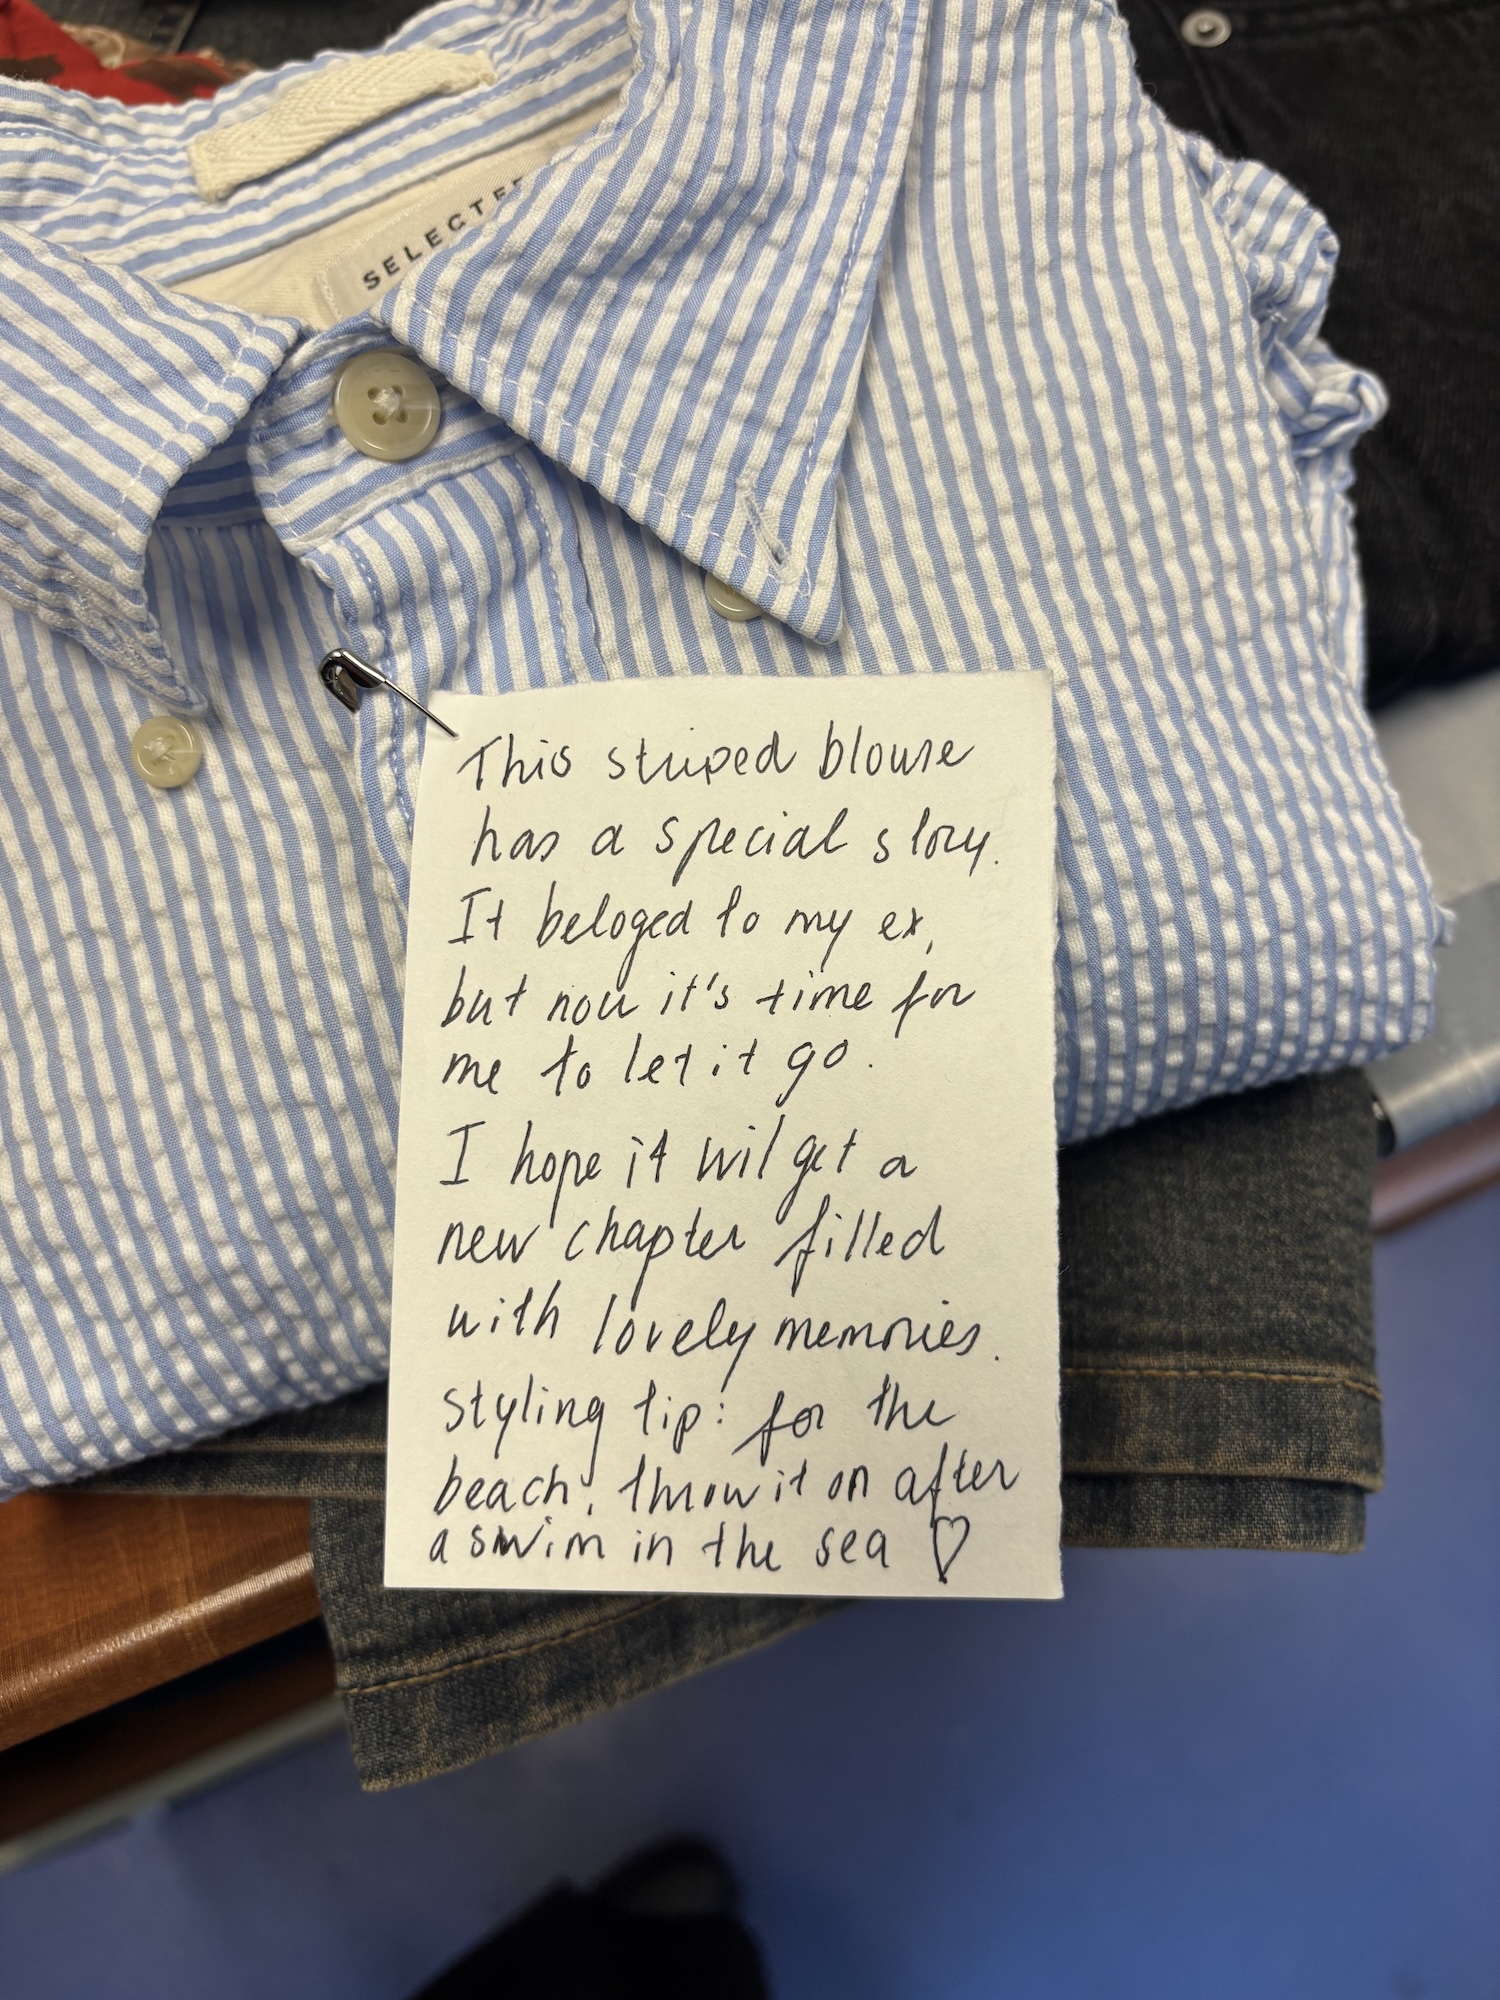 SELECTE
This striped blouse
has a special story.
It beloged to my ex,
but now it's time for
me to let it go.
I hope it wil get a
new chapter filled
with lovely memories.
styling tip: for the
beach, throw it on after
a swim in the sea ♡